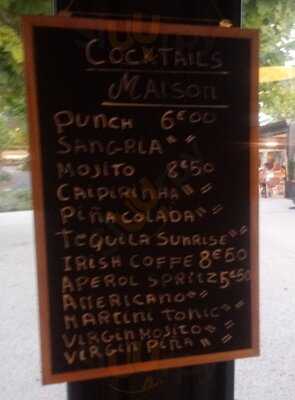 COCKTAILS
MAISON
PUNCH 6€00
SANGRIA " "
MOJITO 8€50
CAIPIRINHA " "
PIÑA COLADA " "
TEQUILA SUNRISE " "
IRISH COFFE 8€50
APEROL SPRITZ 5€50
AMERICANO " "
MARTINI TONIC " "
VIRGIN MOJITO " "
VIRGIN PIÑA " "